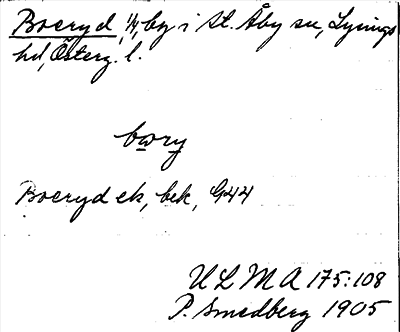 Boeryd, 1/1, by i St. Åby sn, Lysings
hd, Österg. l.
bwry
Boeryd ek, bek, G44
ULMA 175:108
P. Smedberg 1905